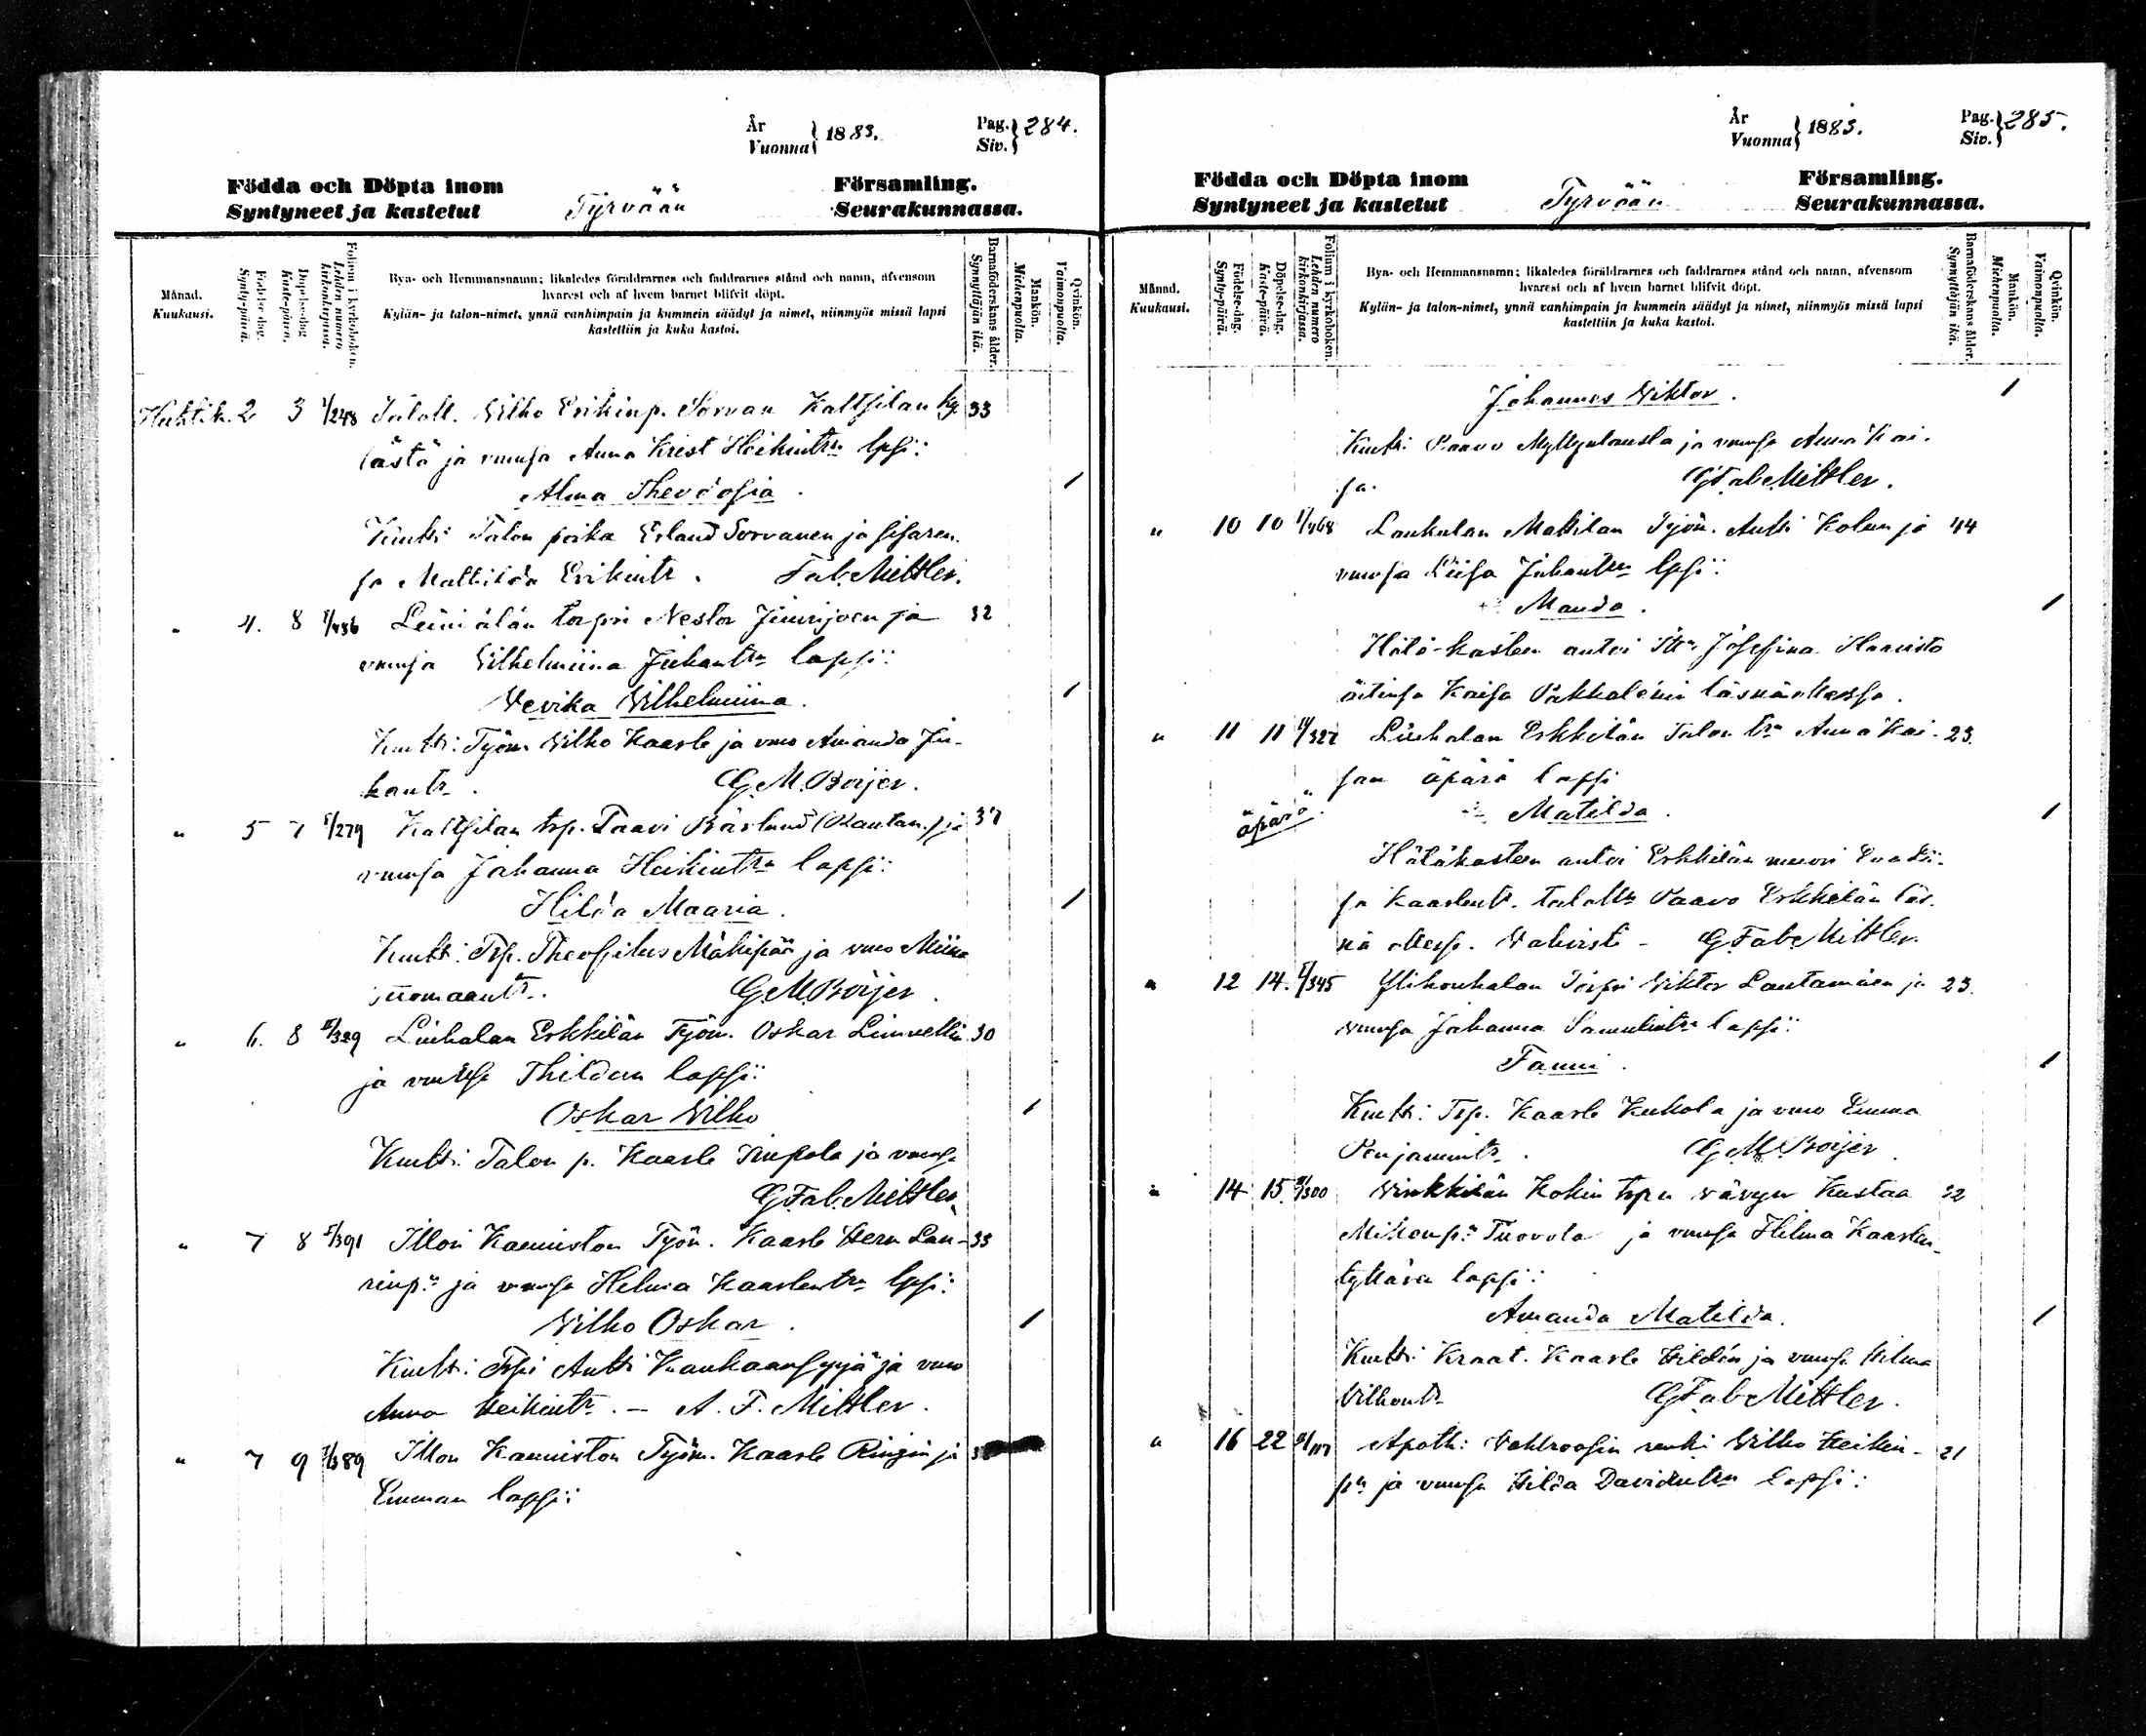 År
Vuonna } 1883.
Pag.
Siv. } 284.
Födda och Döpta inom
Syntyneet ja kastetut
Tyrvään
Församling.
Seurakunnassa.
Månad.
Kuukausi.
Födelse-dag.
Synty-päivä.
Döpelse-dag.
Kaste-päivä.
Folium i kyrkoboken.
Lehden numero kirkonkirjassa.
Bya- och Hemmansnamn; likaledes föräldrarnes och faddrarnes stånd och namn, äfvensom
hvarest och af hvem barnet blifvit döpt.
Kylän- ja talon-nimet, ynnä vanhimpain ja kummein säädyt ja nimet, niinmyös missä lapsi
kastettiin ja kuka kastoi.
Barnaföderskans ålder.
Synnyttäjän ikä.
Mankön.
Miehenpuolta.
Qvinkön.
Vaimonpuolta.
Huhtik. 2 3 /248 Taloll. Vilho Erikinp. Sorvan Kaltsilan ky 33
lästä ja vmonsa Anna Krest Heikintr lpsi:
Alma Theodosia. /
Kmtti: Talon poika Erland Sorvanen ja sisaren-
sa Mathilda Erikintr. Fab. Mittler.
" 4. 8 /436 Leiniälän torpri Nestor Junnijoen ja 32
vmonsa Vilhelmiina Juhantr lapsi:
Vevika Vilhelmiina. /
Kmtti: Työm. Vilho Kaarle ja vmo Amanda Ju-
hantr. G. M. Boijer.
" 5 7 /279 Kaltsilan trp. Taavi Bärlund (Rautan.) ja 37
vmonsa Johanna Heikintr lapsi:
Hilda Maaria. /
Kmtt: Trp. Theofilus Mäkipää ja vmo Miina
Tuomaantr. G M Boijer.
" 6. 8 /329 Liuhalan Erkkilän Työm. Oskar Linnellin 30
ja vmonsa Thildan lapsi:
Oskar Vilho /
Kmtti: Talon p. Kaarle Simpola ja vmonsa
G. Fab. Mittler.
" 7 8 /391 Illon Kanniston Työm. Kaarle Herm Lau- 33
rinp:n ja vmonsa Helma Kaarlentr lpsi:
Vilho Oskar. /
Kmtt: Trpri Antti Kaukaansyrjä ja vmo
Anna Heikintr. – A. F. Mittler.
" 7 9 /389 Illon Kanniston Työm. Kaarle Ringin ja
Emman lapsi:
År
Vuonna } 1883.
Pag.
Siv. } 285.
Födda och Döpta inom
Syntyneet ja kastetut
Tyrvään
Församling.
Seurakunnassa.
Månad.
Kuukausi.
Födelse-dag.
Synty-päivä.
Döpelse-dag.
Kaste-päivä.
Folium i kyrkoboken.
Lehden numero kirkonkirjassa.
Bya- och Hemmansnamn; likaledes föräldrarnes och faddrarnes stånd och namn, äfvensom
hvarest och af hvem barnet blifvit döpt.
Kylän- ja talon-nimet, ynnä vanhimpain ja kummein säädyt ja nimet, niinmyös missä lapsi
kastettiin ja kuka kastoi.
Barnaföderskans ålder.
Synnyttäjän ikä.
Mankön.
Miehenpuolta.
Qvinkön.
Vaimonpuolta.
Johannes Viktor. /
Kmtt: Paavo Myllymausta ja vmonsa Anna Kai-
sa. G Fab Mittler.
" 10 10 /468 Laukulan Mattilan Työm. Antti Kolun ja 44
vmonsa Liisa Juhantr lpsi:
Manda. /
Hätä-kasteen antoi Josefina Haavisto
äitinsä Kaisa Pakkaleni läsnäollessa.
" 11 11 /327 Liuhalan Erkkilän Talon tr Anna Kai- 23.
san äpärä lapsi
äpärä. Matilda. /
Hätäkasteen antoi Erkkilän muori Eva Lii-
sa Kaarlentr. talollr Paavo Erkkilän läs-
nä olless. Vahvisti – G Fab Mittler.
" 12 14. /345 Ylihouhalan Torpri Viktor Lautamäen ja 23.
vmonsa Johanna Samulintr lapsi:
Fanni. /
Kmtt: Trp. Kaarle Kukola ja vmo Emma
Penjamintr. G M Boijer.
" 14 15. /300 Vinkkilän Kokin trpn vävyn Kustaa
Mikonp:n Tuovola ja vmonsa Hilma Kaarlen-
tyttären lapsi:
Amanda Matilda. /
Kmtt: Kraat. Kaarle Hildén ja vmonsa Hilma
Vilhontr G Fab Mittler.
" 16 22 /117 Apoth: Vahlroosin renki Vilho Heikin- 21
p:n ja vmonsa Hilda Davidintr lapsi: